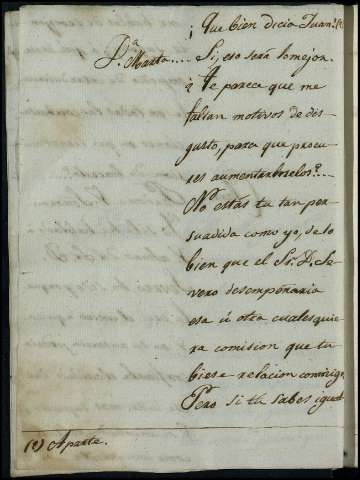 ¡Que bien dicia Juan!
D.ª Marta.... Si, eso será lo mejor.
¿ Te parece que me
faltan motivos de dis-
gusto, para que procu-
ses aumentarmelos?....
No estás tu tan per-
suadida como yo, de lo
bien que el Sr. D. Se-
vero desempeñaria
esa ú otra cualesquie-
ra comision que tu-
biese relacion conmigo
Pero si tu sabes igual
(1) Aparte.